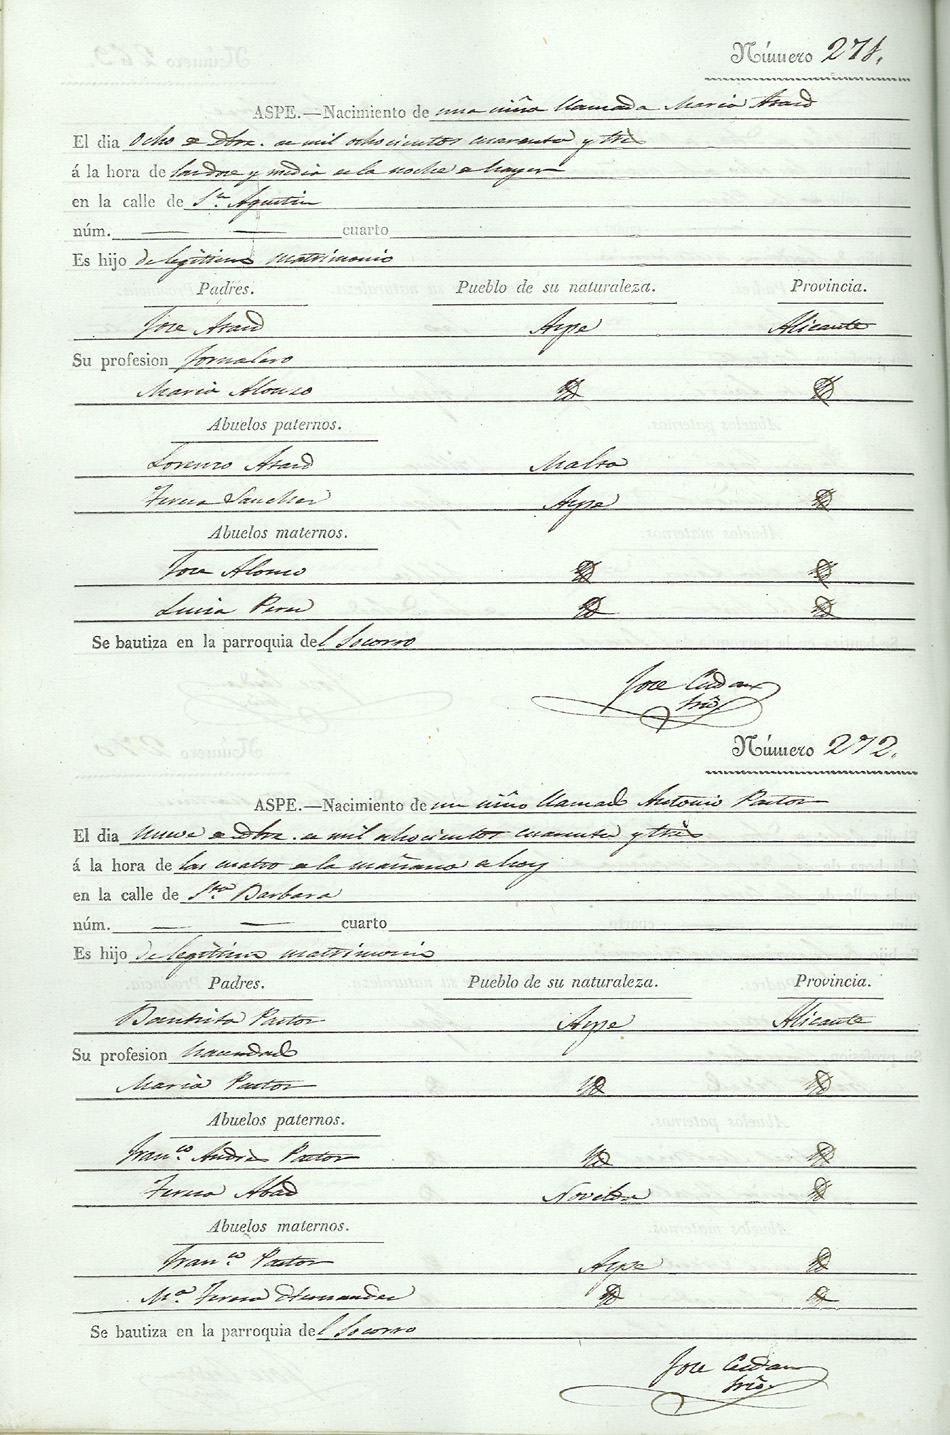 Número 271.
ASPE.—Nacimiento de una niña llamada Maria Azard
El dia Ocho de Dbre. de mil ochocientos cuarenta y tres
á la hora de las doce y media de la noche de hayer
en la calle de Sn. Agustin
núm. — — cuarto
Es hijo de legitimo matrimonio
Padres. Pueblo de su naturaleza. Provincia.
Jose Azard Aspe Alicante
Su profesion Jornalero
Maria Alonso Yd Yd
Abuelos paternos.
Lorenzo Azard Malta
Teresa Sanchez Aspe Yd
Abuelos maternos.
Jose Alonso Yd Yd
Lucia Perez Yd Yd
Se bautiza en la parroquia del Socorro
Jose
Srio
Número 272.
ASPE.—Nacimiento de un niño llamado Antonio Pastor
El dia Nueve de Dbre. de mil ochocientos cuarenta y tres
á la hora de las cuatro de la mañana de hoy
en la calle de Sta. Barbara
núm. — — cuarto
Es hijo de legitimo matrimonio
Padres. Pueblo de su naturaleza. Provincia.
Bautista Pastor Aspe Alicante
Su profesion hacendado
Maria Pastor Yd Yd
Abuelos paternos.
Franco. Andres Pastor Yd Yd
Teresa Abad Novelda Yd
Abuelos maternos.
Franco. Pastor Aspe Yd
Ma. Teresa Hernandez Yd Yd
Se bautiza en la parroquia del Socorro
Jose
Srio